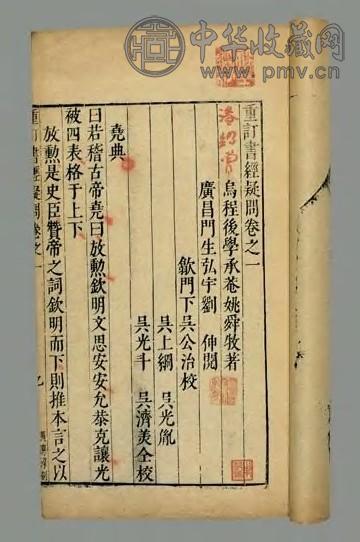 中华收藏网
www.pmv.cn
重訂書經疑問卷之一
烏程後學承菴姚舜牧著
廣昌門生弘宇劉 伸閱
歙門下吳公治校
吳上綱 吳光胤
吳光斗 吳濟美仝校
堯典
曰若稽古帝堯曰放勲欽明文思安安允恭克讓光
被四表格于上下
放勲是史臣贊帝之詞欽明而下則推本言之以
重訂書經疑問卷之一